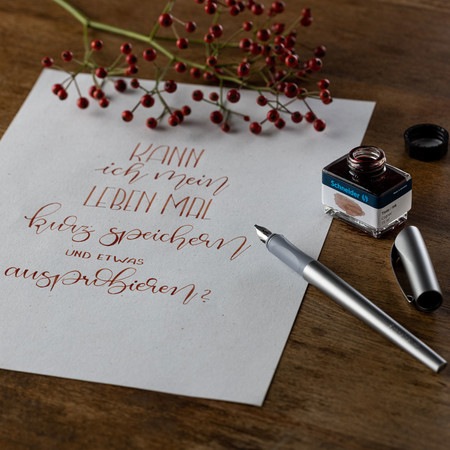 KANN
ich mein
LEBEN MAL
kurz speichern
UND ETWAS
ausprobieren?
Schneider